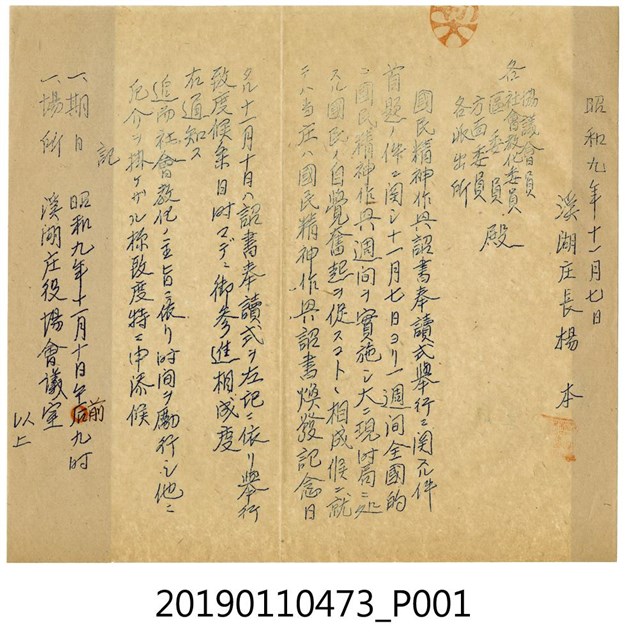 昭和九年十一月七日
溪湖庄長楊 本
各
協議會員
社會教化委員
區委員
方面委員
各派出所
殿
國民精神作興詔書奉讀式擧行ニ関スル件
首題ノ件ニ関シ十一月七日ヨリ一週間全國的
ニ國民精神作興週間ヲ實施シ大ニ現時局ニ処
スル國民ノ自覺奮起ヲ促スコトヽ相成候ニ就
テハ当庄ハ國民精神作興詔書煥發記念日
タル十一月十日ハ詔書奉讀式ヲ左記ニ依リ擧行
致度候条日时マデニ御参進相成度
右通知ス
追而社會教化ノ主旨ニ依リ时间ヲ勵行シ他ニ
厄介ヲ掛ケザル様致度特ニ申添候
記
一、期日 昭和九年十一月十日午前九时
一、場所 溪湖庄役場會議室
以上
20190110473_P001